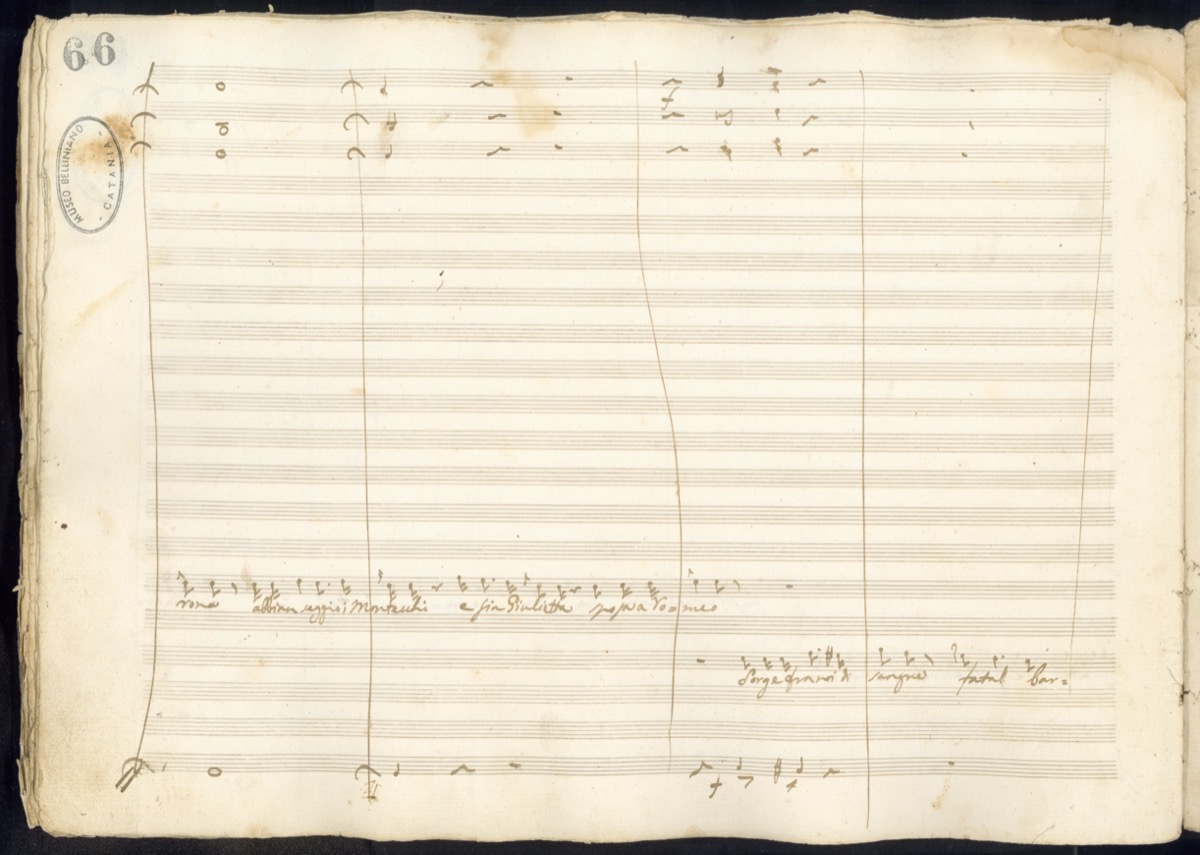 66
MUSEO BELLINIANO
- CATANIA -
f
rona abbian seggio i Montecchi e sia Giulietta sposa a Ro=meo
Sorge fra noi di sangue fatal bar=
f